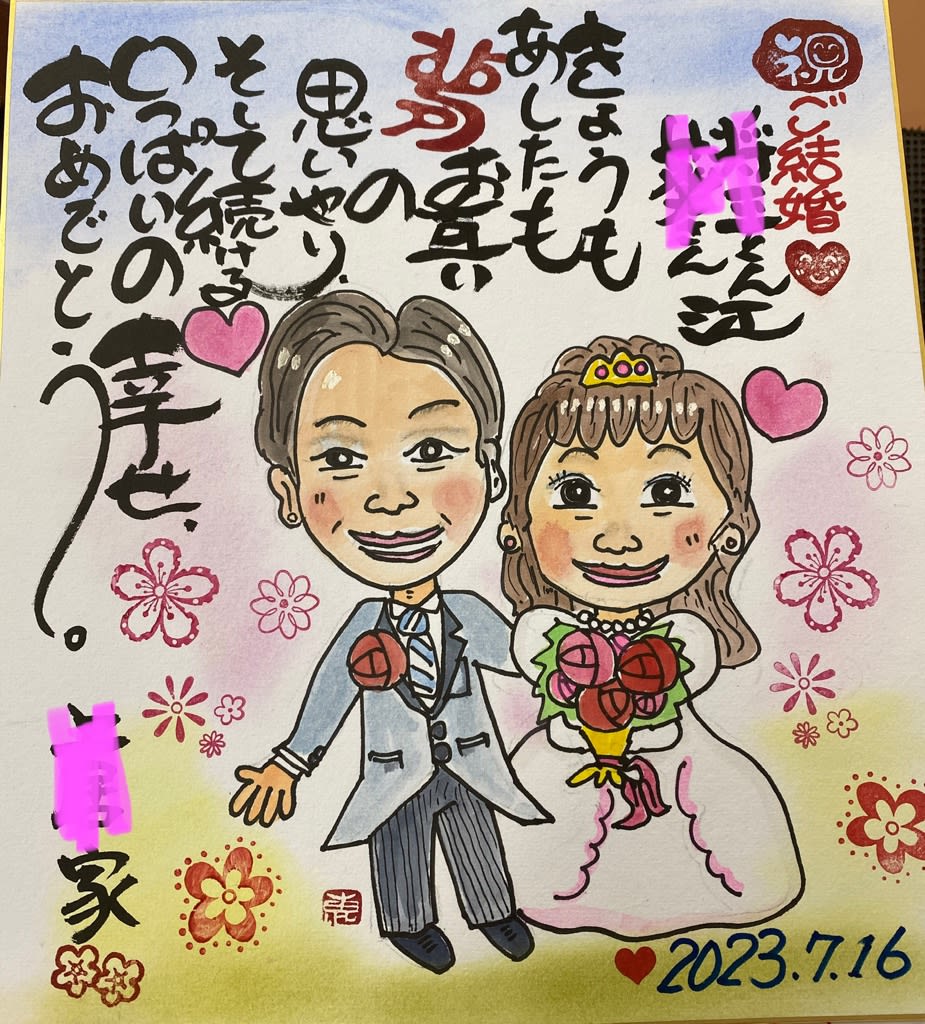 祝
ご結婚
さん
さん江
きょうも
あしたも
お互い
の
思いやり、
そして続ける
いっぱいの幸せ、
おめでとう。
家
2023.7.16